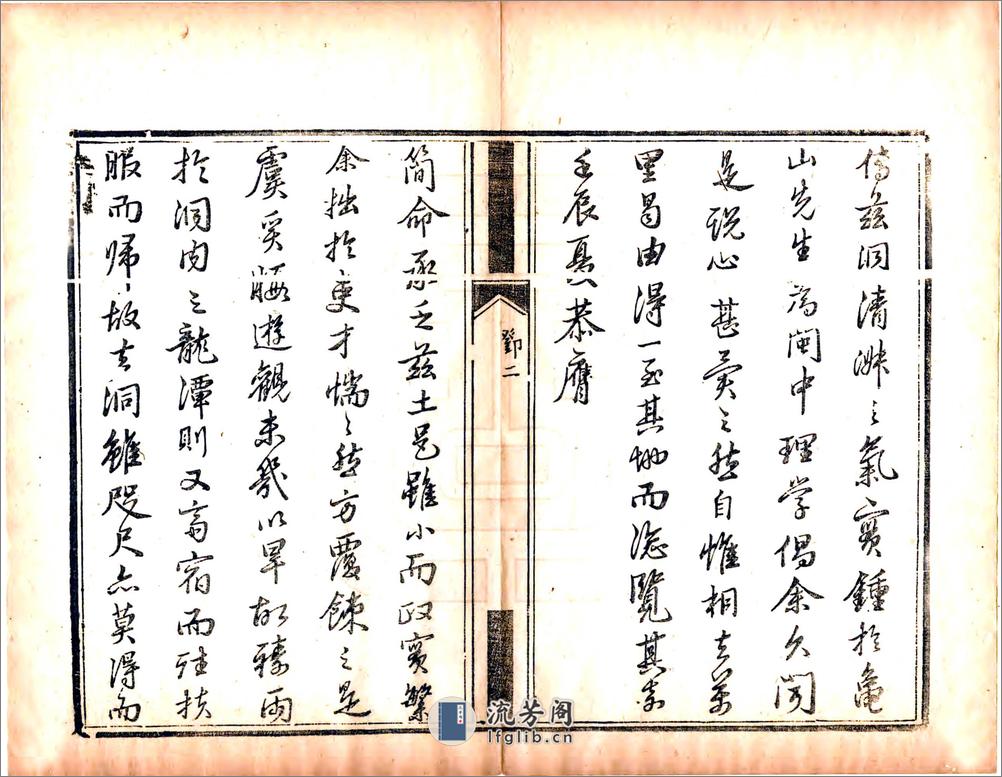 傳兹洞清淑之氣實鍾於龜
山先生為閩中理学倡余久聞
是説心甚異之然自惟相去萬
里曷由得一至其地而覽其
壬辰夏恭膺
鄧二
簡命承乏兹土邑雖小而政實繁
余拙於吏才惴〻然方覆餗之是
虞奚暇遊觀未幾以旱故禱雨
於洞内之龍潭則又齋宿而往扶
服而歸故去洞雖咫尺亦莫得而
流芳阁
lfglib.cn